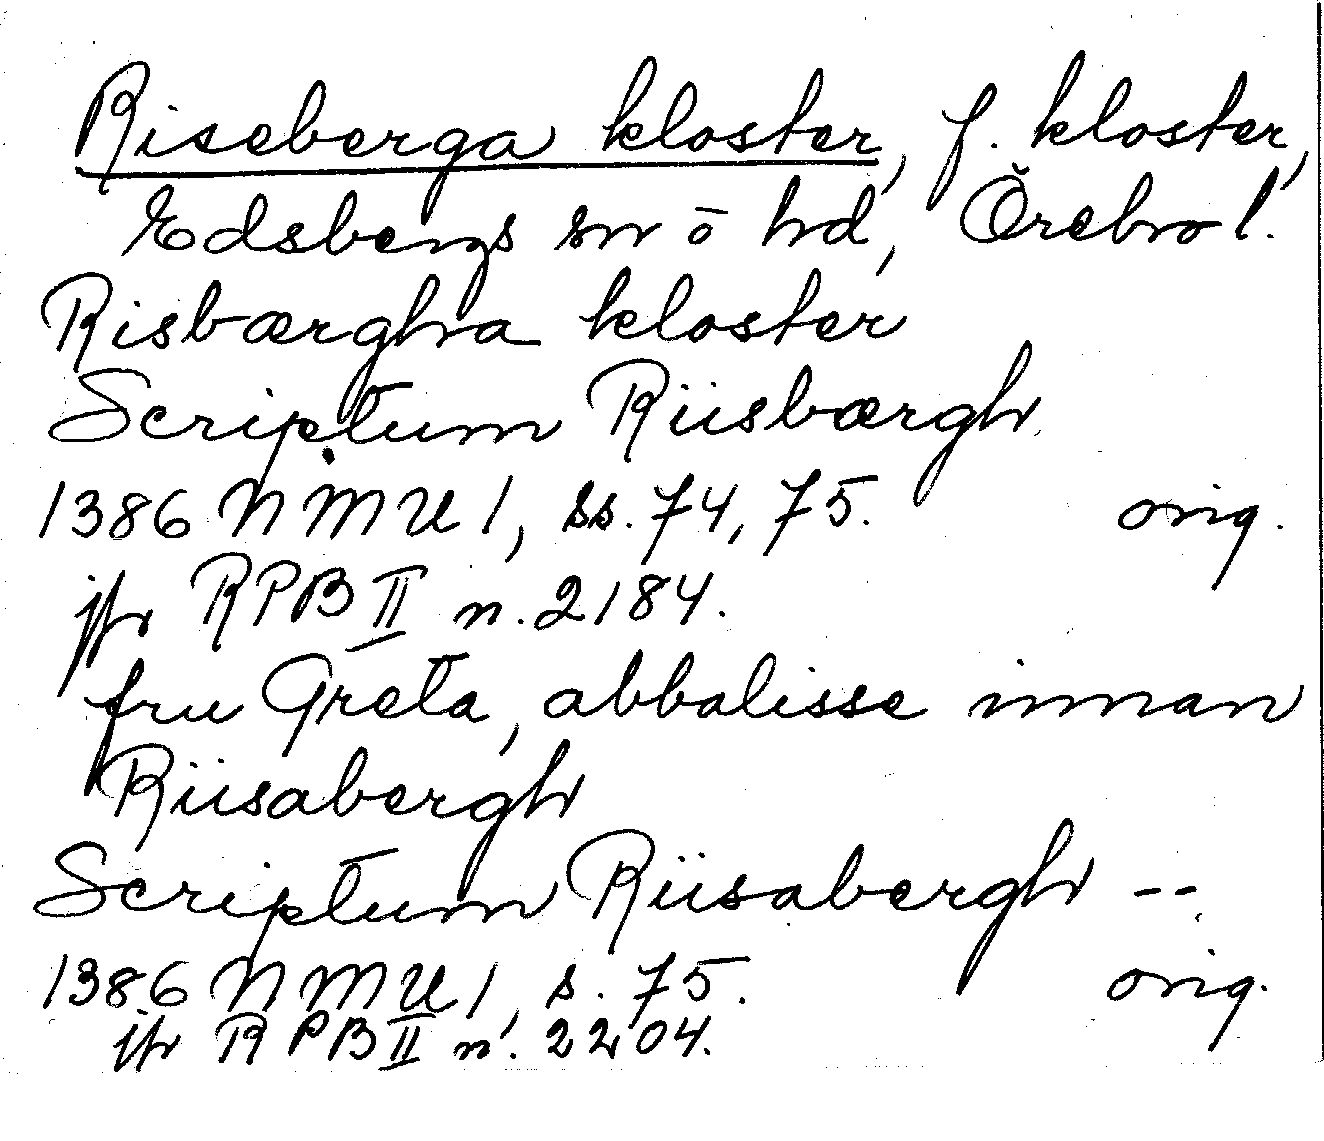 Riseberga kloster, f. kloster,
Edsbergs sn o hd, Örebro l.
Risbærgha kloster
Scriptum Riisbærgh
1386 NMU 1, ss. 74, 75. orig.
jfr RPB II n. 2184.
fru Greta, abbatisse innan
Riisabergh
Scriptum Riisabergh --
1386 NMU 1, s. 75. orig.
jfr RPB II n. 2204.